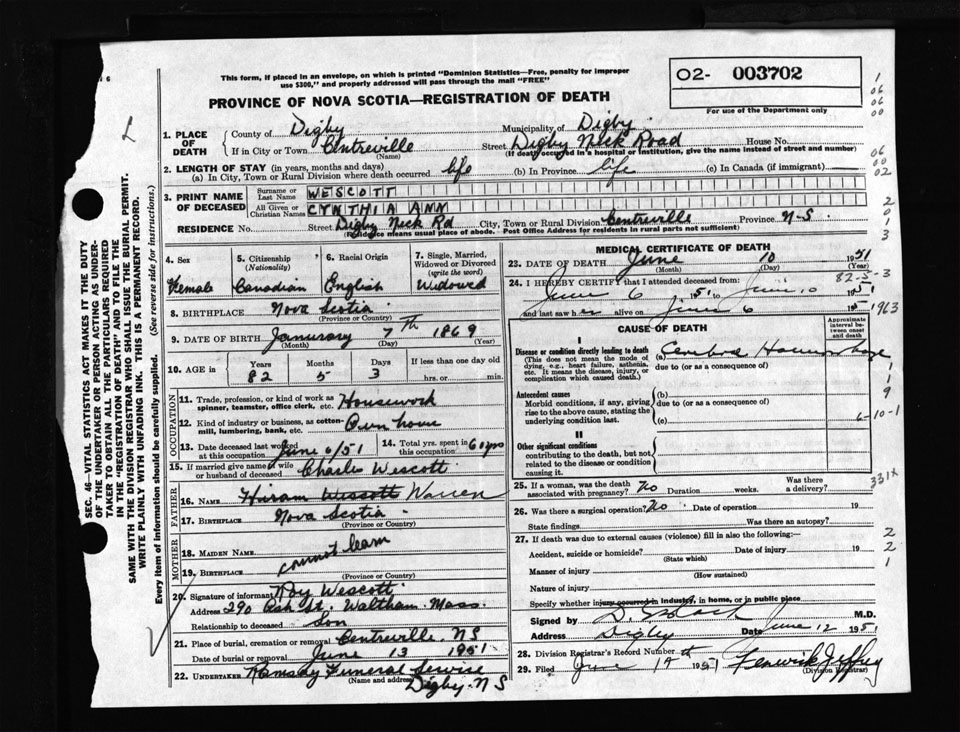 This form, if placed in an envelope, on which is printed "Dominion Statistics—Free, penalty for improper
use $300," and properly addressed will pass through the mail "FREE"
O2- 003702
For use of the Department only
PROVINCE OF NOVA SCOTIA—REGISTRATION OF DEATH
1. PLACE OF DEATH
County of Digby Municipality of Digby
If in City or Town Centreville Street Digby Neck Road House No.
(Name) (If death occurred in a hospital or institution, give the name instead of street and number)
2. LENGTH OF STAY (in years, months and days)
(a) In City, Town or Rural Division where death occurred life (b) In Province life (c) In Canada (if immigrant)
3. PRINT NAME OF DECEASED
Surname or Last Name WESCOTT
All Given or Christian Names CYNTHIA ANN
RESIDENCE No. Street Digby Neck Rd City, Town or Rural Division Centreville Province N-S
(Residence means usual place of abode. Post Office Address for residents in rural parts not sufficient)
4. Sex
Female
5. Citizenship (Nationality)
Canadian
6. Racial Origin
English
7. Single, Married, Widowed or Divorced (write the word)
Widowed
8. BIRTHPLACE Nova Scotia
(Province or Country)
9. DATE OF BIRTH Janurary 7th 1869
(Month) (Day) (Year)
10. AGE in
Years Months Days If less than one day old
82 5 3 hrs. or min.
OCCUPATION
11. Trade, profession, or kind of work as spinner, teamster, office clerk, etc. Housework
12. Kind of industry or business, as cotton-mill, lumbering, bank, etc. Own home
13. Date deceased last worked at this occupation June 6/51
14. Total yrs. spent in this occupation 60 yrs
15. If married give name of wife or husband of deceased Charles Wescott
FATHER
16. NAME Hiram Wescott Warren
17. BIRTHPLACE Nova Scotia
(Province or Country)
MOTHER
18. MAIDEN NAME
cannot learn
19. BIRTHPLACE
(Province or Country)
20. Signature of informant Roy Wescott
Address 290 Ash St. Waltham. Mass.
Relationship to deceased Son
21. Place of burial, cremation or removal Centreville. NS
Date of burial or removal June 13 1951
22. UNDERTAKER Ramsay Funeral Service
(Name and address) Digby. N S
MEDICAL CERTIFICATE OF DEATH
23. DATE OF DEATH June 10 1951
(Month) (Day) (Year)
82-5-3
24. I HEREBY CERTIFY that I attended deceased from:
June 6 1951 to June 10 1951
and last saw her alive on June 6 195
1963
CAUSE OF DEATH
Approximate interval between onset and death
I
Disease or condition directly leading to death (a) Cerebral Haemorrhage
(This does not mean the mode of dying, e.g., heart failure, asthenia, etc. It means the disease, injury, or complication which caused death.)
due to (or as a consequence of)
Antecedent causes (b)
Morbid conditions, if any, giving rise to the above cause, stating the underlying condition last.
due to (or as a consequence of)
(c)
6-10-1
II
Other significant conditions
contributing to the death, but not related to the disease or condition causing it.
25. If a woman, was the death associated with pregnancy? No Duration weeks. Was there a delivery?
331x
26. Was there a surgical operation? No Date of operation 19
State findings Was there an autopsy?
27. If death was due to external causes (violence) fill in also the following:—
Accident, suicide or homicide? Date of injury 19
(State which)
Manner of injury
(How sustained)
Nature of injury
Specify whether injury occurred in industry, in home, or in public place
Signed by M.D.
Address Digby Date June 12 1951
28. Division Registrar's Record Number
29. Filed June 14 1951 Fenwick Jeffrey
(Division Registrar)
SEC. 46—VITAL STATISTICS ACT MAKES IT THE DUTY
OF THE UNDERTAKER OR PERSON ACTING AS UNDER-
TAKER TO OBTAIN ALL THE PARTICULARS REQUIRED
IN THE "REGISTRATION OF DEATH" AND TO FILE THE
SAME WITH THE DIVISION REGISTRAR WHO SHALL ISSUE THE BURIAL PERMIT.
WRITE PLAINLY WITH UNFADING INK. THIS IS A PERMANENT RECORD.
Every item of information should be carefully supplied. (See reverse side for instructions.)
1
06
06
00
06
00
02
2
0
1
3
1
1
9
2
2
1